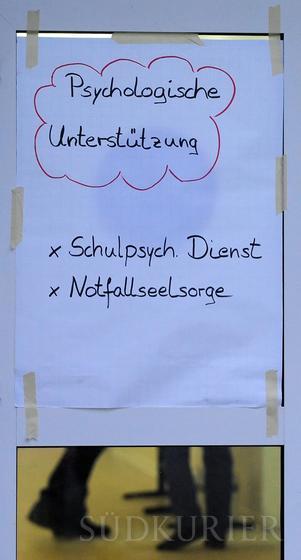 Psychologische
Unterstützung
x Schulpsych. Dienst
x Notfallseelsorge
SÜDKURIER